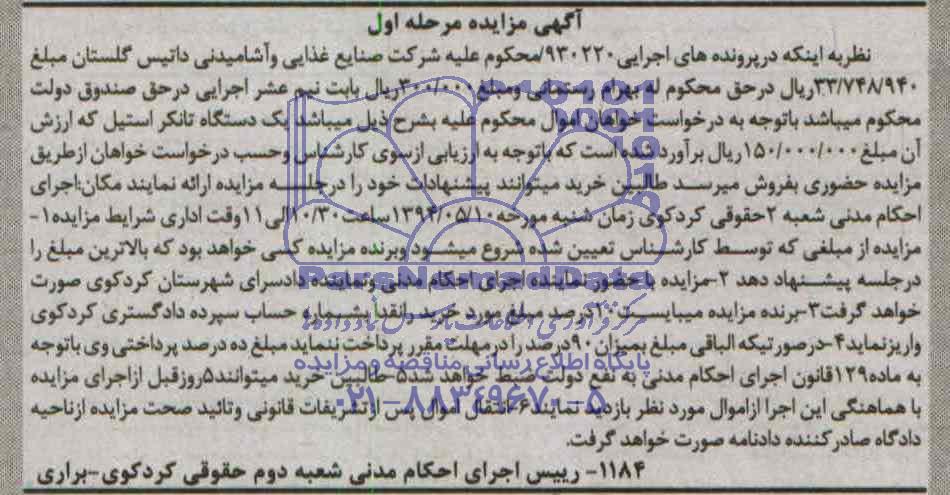 آگهی مزایده مرحله اول
نظربه اینکه درپرونده های اجرایی۹۳۰۲۲۰/محکوم علیه شرکت صنایع غذایی وآشامیدنی داتیس گلستان مبلغ
۳۳/۷۴۸/۹۴۰ریال درحق محکوم له بهرام رستمانی ومبلغ۳۰۰/۰۰۰ریال بابت نیم عشر اجرایی درحق صندوق دولت
محکوم میباشد باتوجه به درخواست خواهان اموال محکوم علیه بشرح ذیل میباشد یک دستگاه تانکر استیل که ارزش
آن مبلغ۱۵۰/۰۰۰/۰۰۰ریال برآورد شده است که باتوجه به ارزیابی ازسوی کارشناس وحسب درخواست خواهان ازطریق
مزایده حضوری بفروش میرسد طالبین خرید میتوانند پیشنهادات خود را درجلسه مزایده ارائه نمایند مکان:اجرای
احکام مدنی شعبه ۲حقوقی کردکوی زمان شنبه مورخه۱۳۹۴/۰۵/۱۰ساعت۱۰/۳۰الی۱۱وقت اداری شرایط مزایده۱-
مزایده از مبلغی که توسط کارشناس تعیین شده شروع میشود وبرنده مزایده کسی خواهد بود که بالاترین مبلغ را
درجلسه پیشنهاد دهد ۲-مزایده باحضور نماینده اجرای احکام مدنی ونماینده دادسرای شهرستان کردکوی صورت
خواهد گرفت۳-برنده مزایده میبایست۱۰درصد مبلغ مورد خرید رانقدا بشماره حساب سپرده دادگستری کردکوی
واریزنماید۴-درصورتیکه الباقی مبلغ بمیزان۹۰درصد را درمهلت مقرر پرداخت ننماید مبلغ ده درصد پرداختی وی باتوجه
به ماده۱۲۹قانون اجرای احکام مدنی به نفع دولت ضبط خواهد شد۵-طالبین خرید میتوانند۵روزقبل ازاجرای مزایده
با هماهنگی این اجرا ازاموال مورد نظر بازدید نمایند۶-انتقال اموال پس ازتشریفات قانونی وتائید صحت مزایده ازناحیه
دادگاه صادرکننده دادنامه صورت خواهد گرفت.
۱۱۸۴- رییس اجرای احکام مدنی شعبه دوم حقوقی کردکوی-براری
ParsNamadData
مرکز فرآوری اطلاعات پارس نماد داده ها
پایگاه اطلاع رسانی مناقصه و مزایده
۰۲۱-۸۸۳۴۹۶۷۰-۵